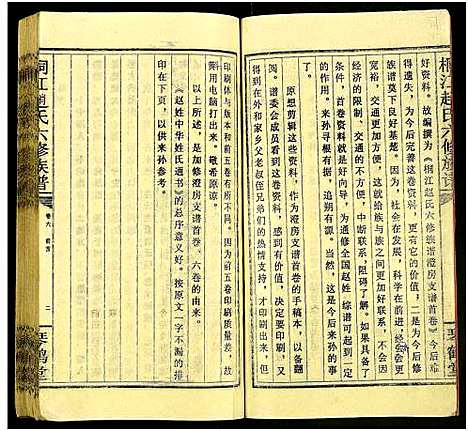 桐江赵氏六修族谱
好资料。故编撰为《桐江赵氏六修族谱澄房支谱首卷》今后难
得遗失，为今后完善这卷资料，更有它的价值；二是为今后修
族谱莫下良好基楚。因为，社会在发展，科学在前进，经会更
宽裕，交通更加方便，这就给族与族之间更加好联系，不会因
经济的限制、交通的不方便，中断联系，阻碍了解。如果具备了
条件，首卷资料就是好向导，为通修全国赵姓综谱可起到一定
的作用。来孙寻根有据，追朔有源。当然，这是今后来孙的事
了。
原想剪辑这些资料，作为澄房支谱首卷的手稿本，以备翻
阅。谱委会成员看了这些资料，感到有价值，决定要印刷出来。
得到在外和家乡父老叔侄兄弟们的热情支持，才印刷出来。因
印刷体与版本和前五卷有所不同。因为前五卷印刷质量差，故
需用电脑打出来。敬希原谅。
以上所说，就是加修澄房支谱首卷、六卷的由来。
《赵姓中华姓氏通书》的总序意义好。按原文一字不漏的排
印在下页，以供来孙参考。
桐江赵氏六修族谱
卷六
二
琴鹤堂
琴鹤堂